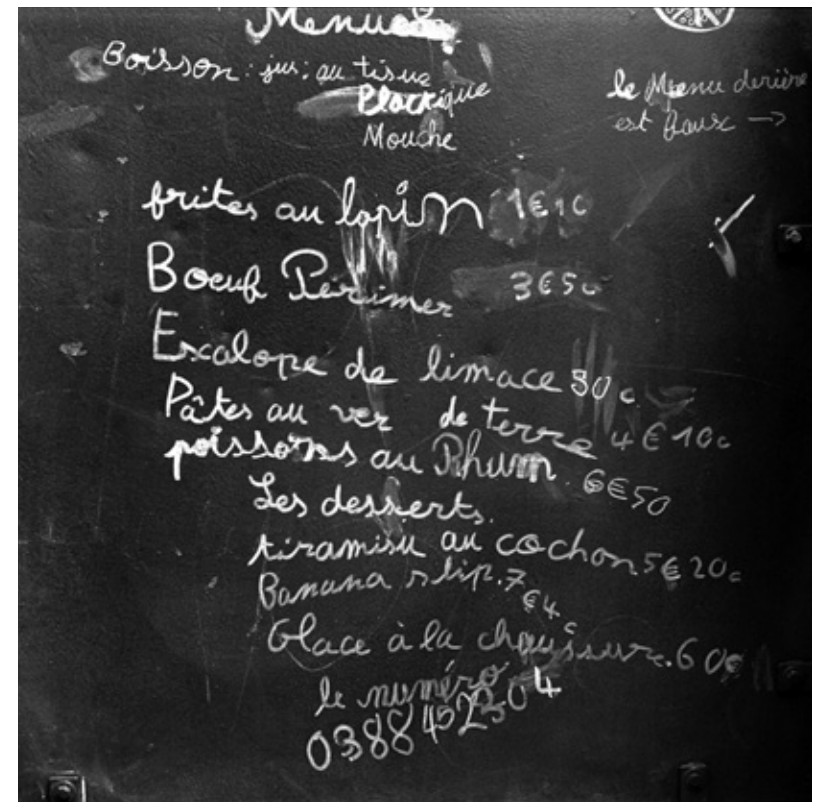 Menu
Boisson : jus : au tisue
Plastique
Mouche
le Menu derière
est faux →
frites au lapin 1€10
Boeuf Périmer 3€50
Escalope de limace 30c
Pâtes au ver de terre 4€10c
poissons au Rhum. 6€50
Les desserts.
tiramisu au cochon 5€20c
Banana slip. 7€4c
Glace à la chaussure. 60c
le numéro
0388452304